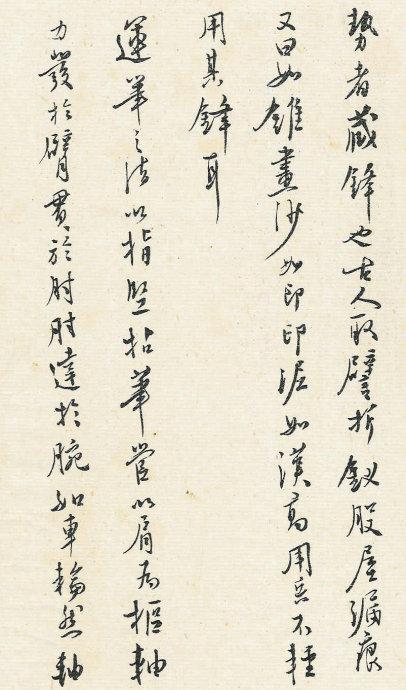 勢者藏鋒也古人取譬折釵股屋漏痕
又曰如錐畫沙如印印泥如漢高用兵不輕
用其鋒耳
運筆之法以指堅拈筆管以肩為樞軸
力發於臂貫於肘肘達於腕如車輪然軸